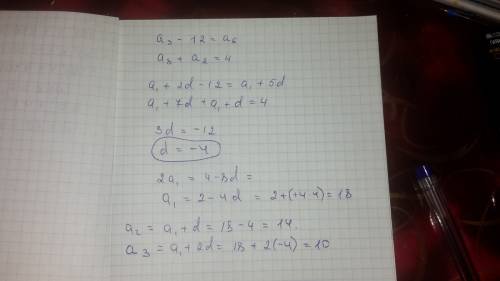 a₃ - 12 = a₆
a₈ + a₂ = 4
a₁ + 2d - 12 = a₁ + 5d
a₁ + 7d + a₁ + d = 4
3d = -12
d = -4
2a₁ = 4 - 8d =
a₁ = 2 - 4d = 2 + (+4·4) = 18
a₂ = a₁ + d = 18 - 4 = 14.
a₃ = a₁ + 2d = 18 + 2(-4) = 10